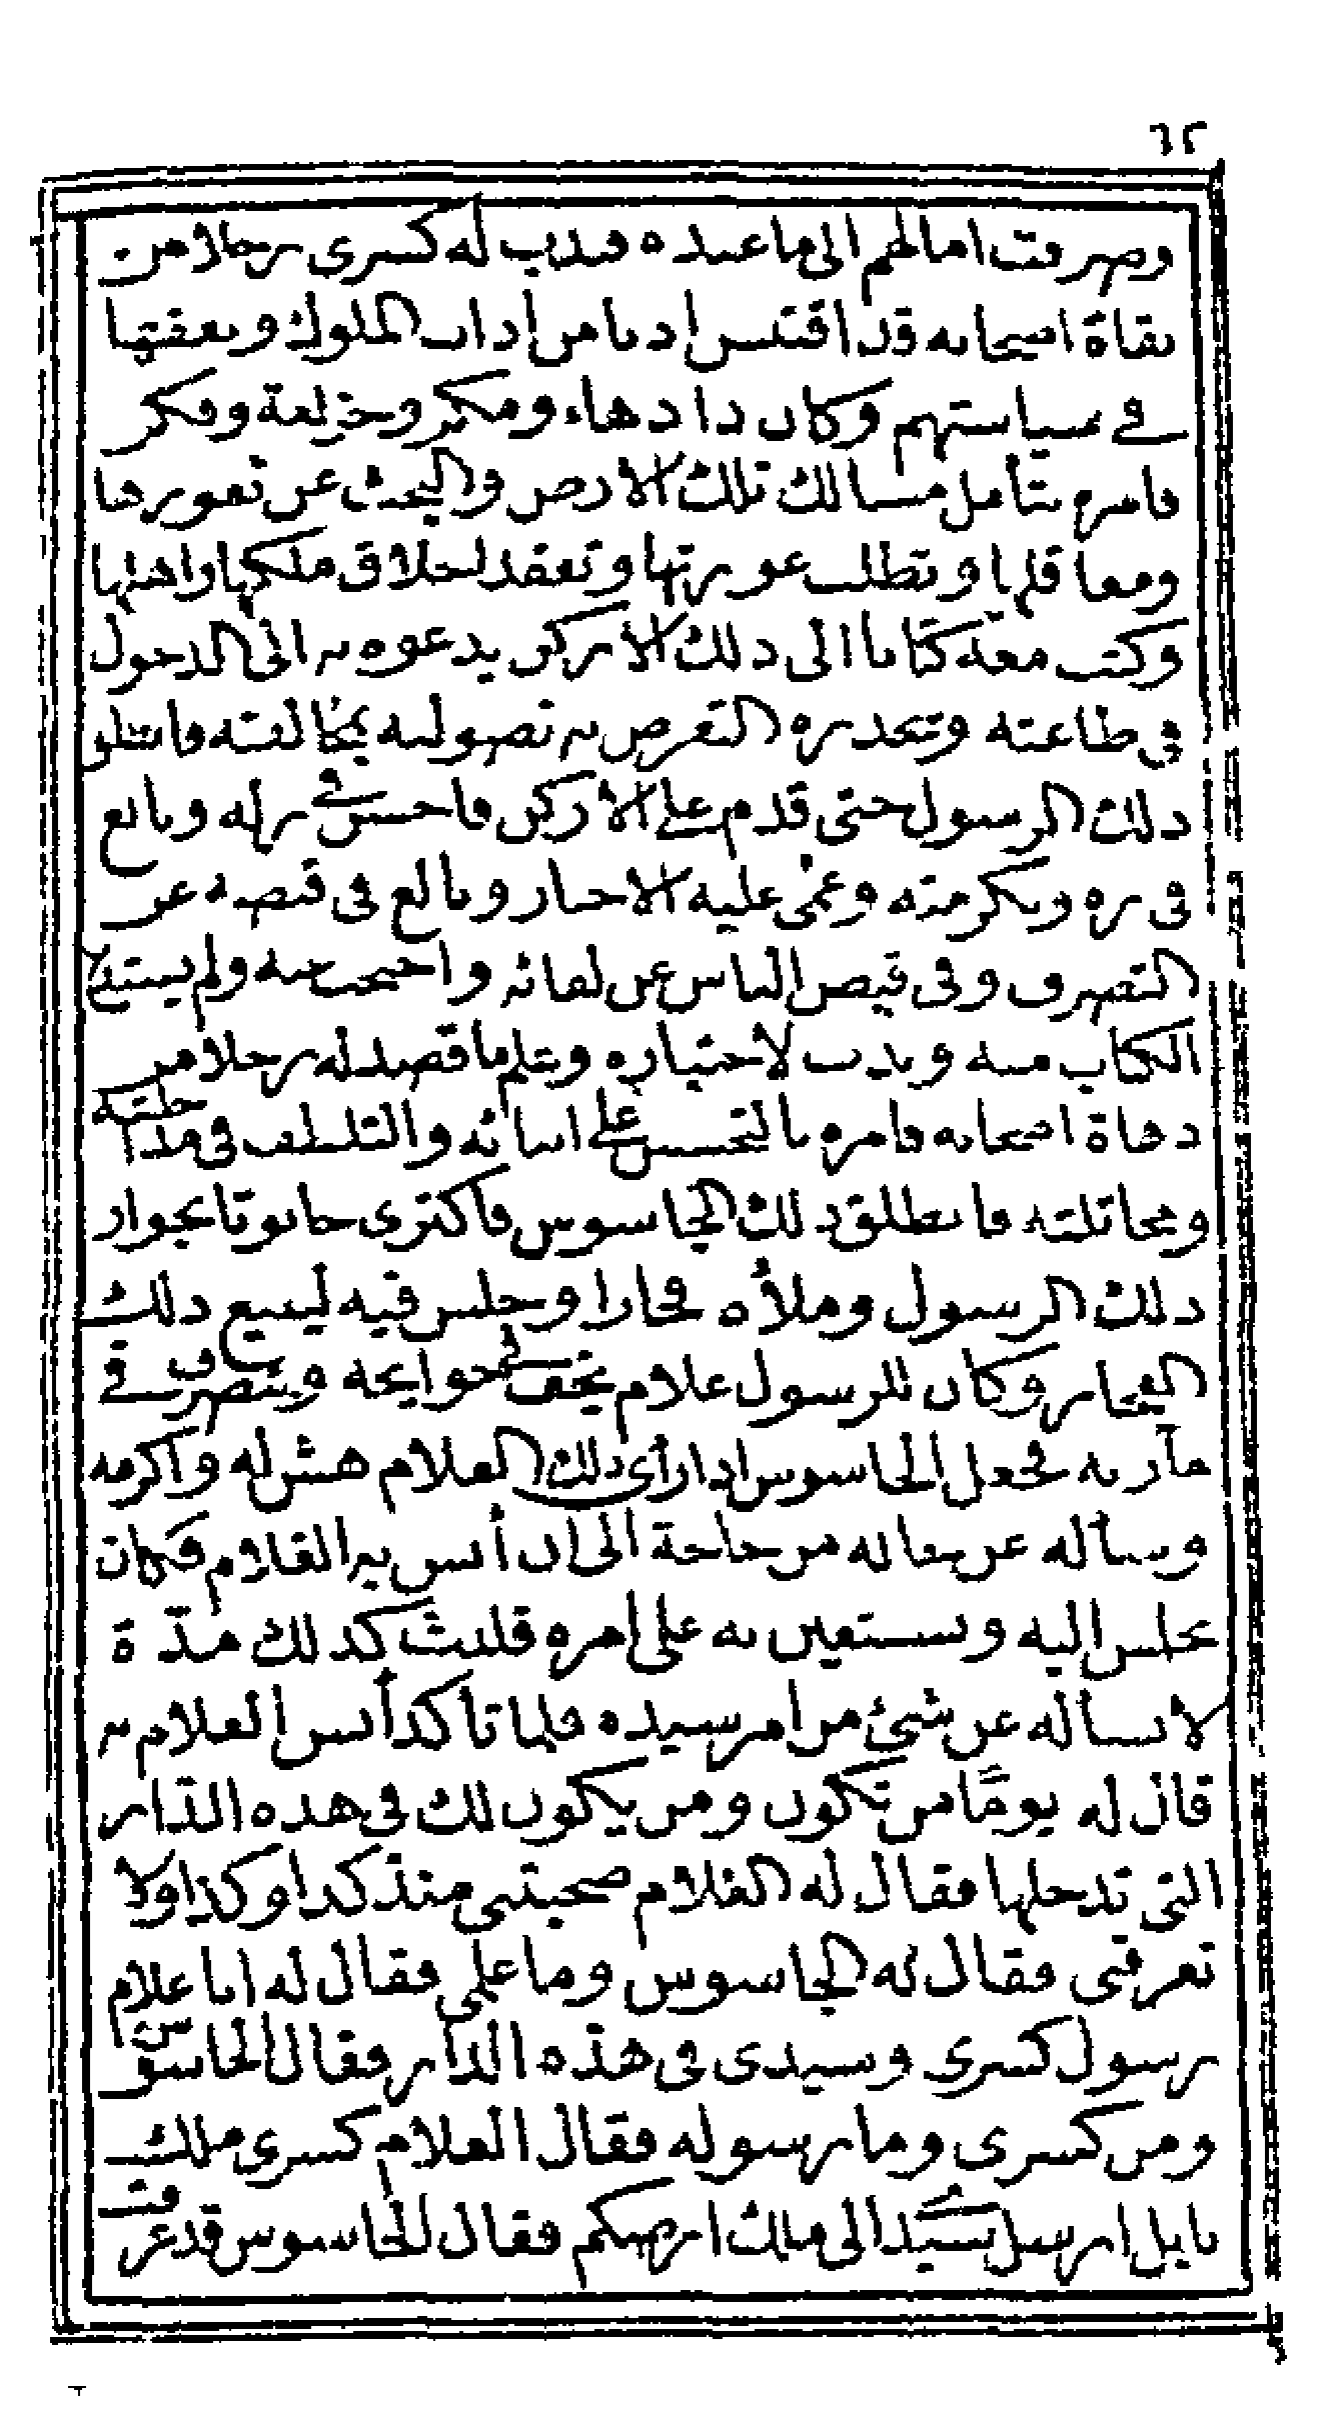 ٦٢
وصرفت امالهم الى ما عنده فندب له كسرى رجلا من
ثقاة اصحابه قد اقتبس ادبا من اداب الملوك وتفقها
في سياستهم وكان ذا دهاء ومكر وخديعة وفكر
فامره بتأمل مسالك تلك الارض والبحث عن ثغورها
ومعاقلها وتطلب عورتها وتفقد اخلاق ملكها واهلها
وكتب معه كتابا الى ذلك الاركن يدعوه به الى الدخول
فى طاعته وتحذره التعرض به بمخالفته فانطلق
ذلك الرسول حتى قدم على الاركن فاحسن في نزله وبالغ
فى بره وتكرمته وعمى عليه الاخبار وبالغ فى قبضه عن
التصرف وفى قبض الناس عن لقائه واحتجب عنه ولم يستدع
الكتاب منه وندب لاختباره وعلم ما قصد له رجلا من
دهاة اصحابه فامره بالتجسس على انبائه والتلطف فى مداخلته
ومخاتلته فانطلق ذلك الجاسوس فاكترى حانوتا بجوار
ذلك الرسول وملأه فخارا وجلس فيه ليبيع ذلك
الفخار وكان للرسول غلام يخف فى حوايجه ويتصرف في
مآربه فجعل الجاسوس اذا رأى ذلك الغلام هش له واكرمه
وسأله عن حاله من حاجة الى ان أنس به الغلام فكان
يجلس اليه ويستعين به على امره فلبث كذلك مدّة
لا يسأله عن شئ من امر سيده فلما تأكد أنس الغلام به
قال له يومًا من تكون ومن يكون لك فى هذه الدّار
التى تدخلها فقال له الغلام صحبتنى منذ كذا وكذا ولا
تعرفنى فقال له الجاسوس وما علمى فقال له انا غلام
رسول كسرى وسيدى فى هذه الدار فقال الجاسوس
ومن كسرى وما رسوله فقال الغلام كسرى ملك
بابل ارسل سيدى الى ملك ارضكم فقال الجاسوس قد عرفت